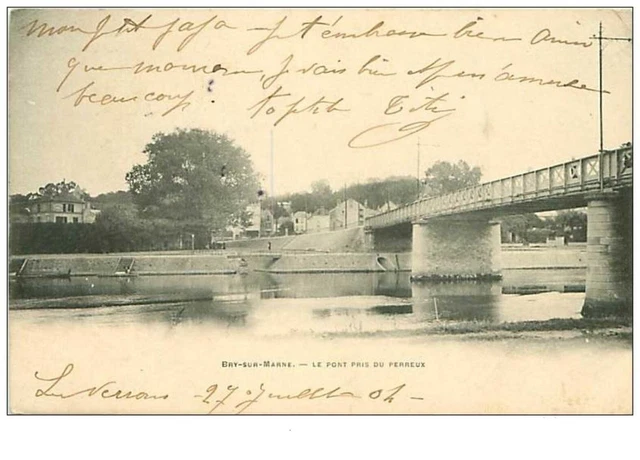 mon petit papa je t'embrasse bien ainsi
que maman, je vais bien et m'amuse
beaucoup ton petit Titi
BRY-SUR-MARNE. — LE PONT PRIS DU PERREUX
Le Perreux 27 Juillet 04